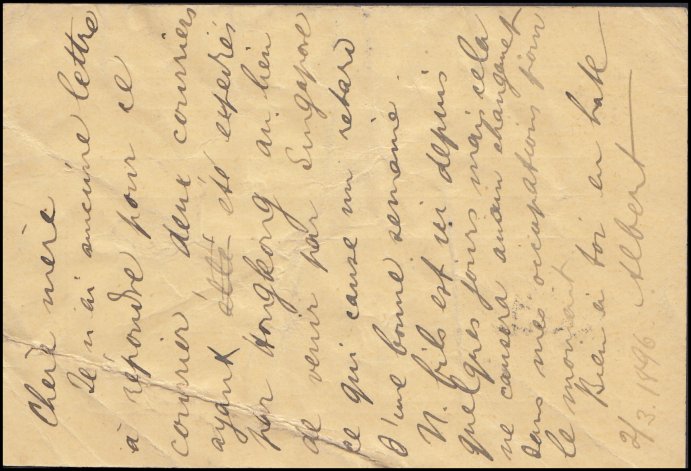 Chère mère
Je n'ai aucune lettre
à répondre pour ce
courrier deux courriers
ayant été expédiés
par Hongkong au lieu
de venir par Singapore
ce qui cause un retard
d'une bonne semaine.
N. fils est ici depuis
quelques jours mais cela
ne causera aucun changement
dans mes occupations pour
le moment
Bien à toi en hate
2/3. 1896 Albert